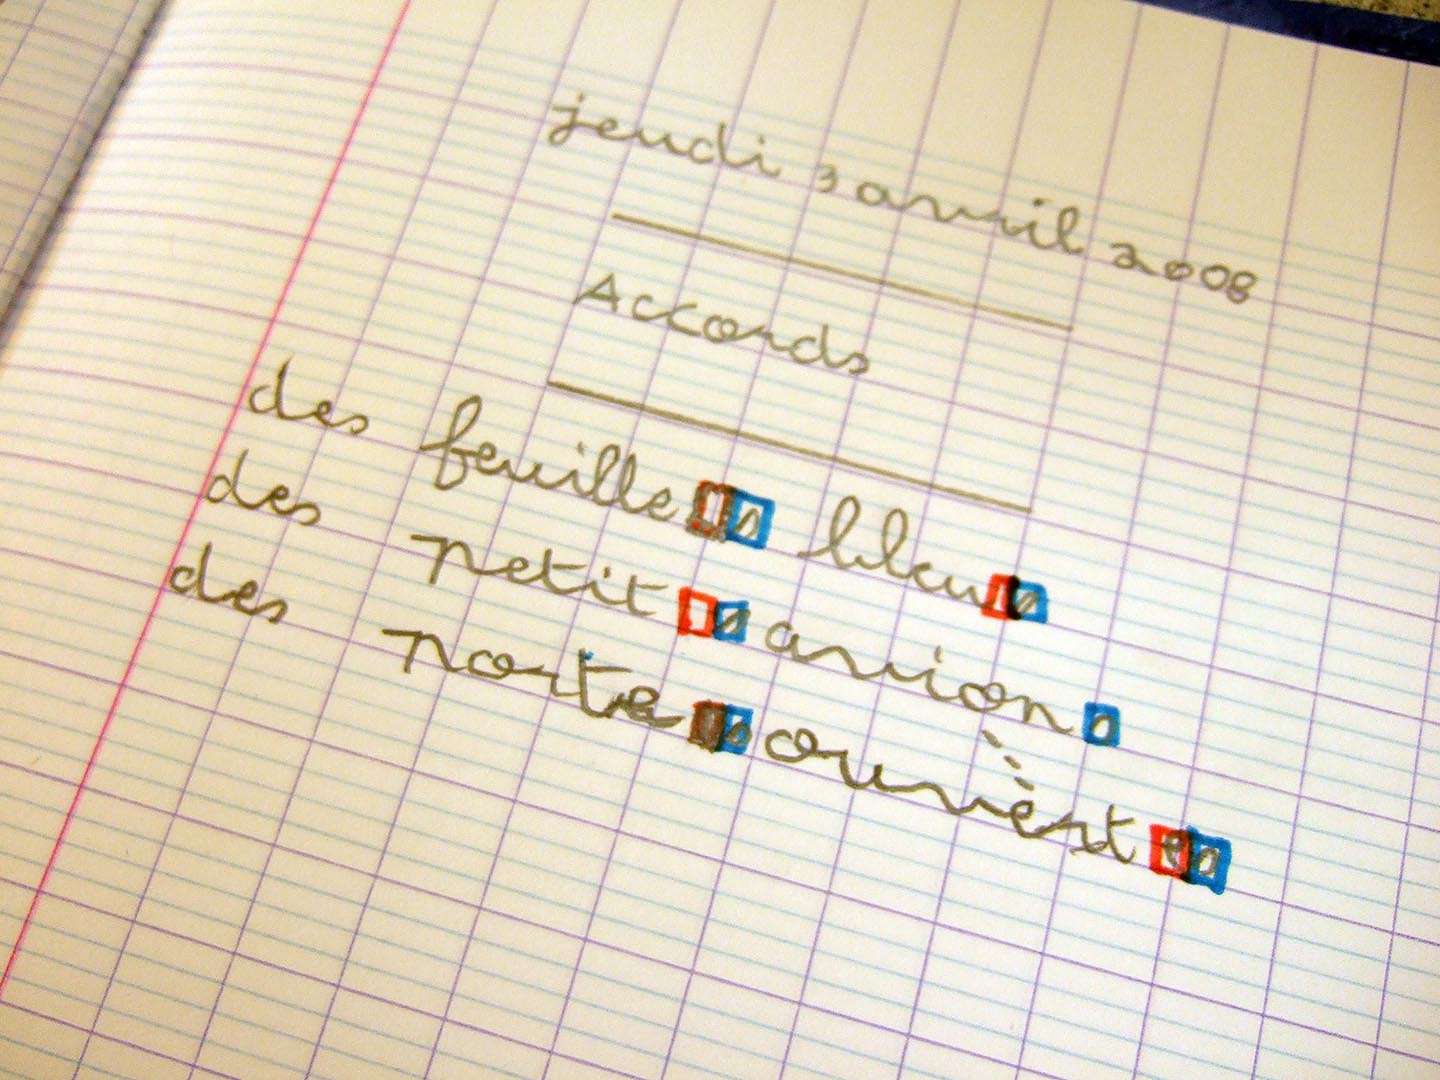 jeudi 3 avril 2008
Accords
des feuilles bleus
des petits avions
des portes ouvèrtes